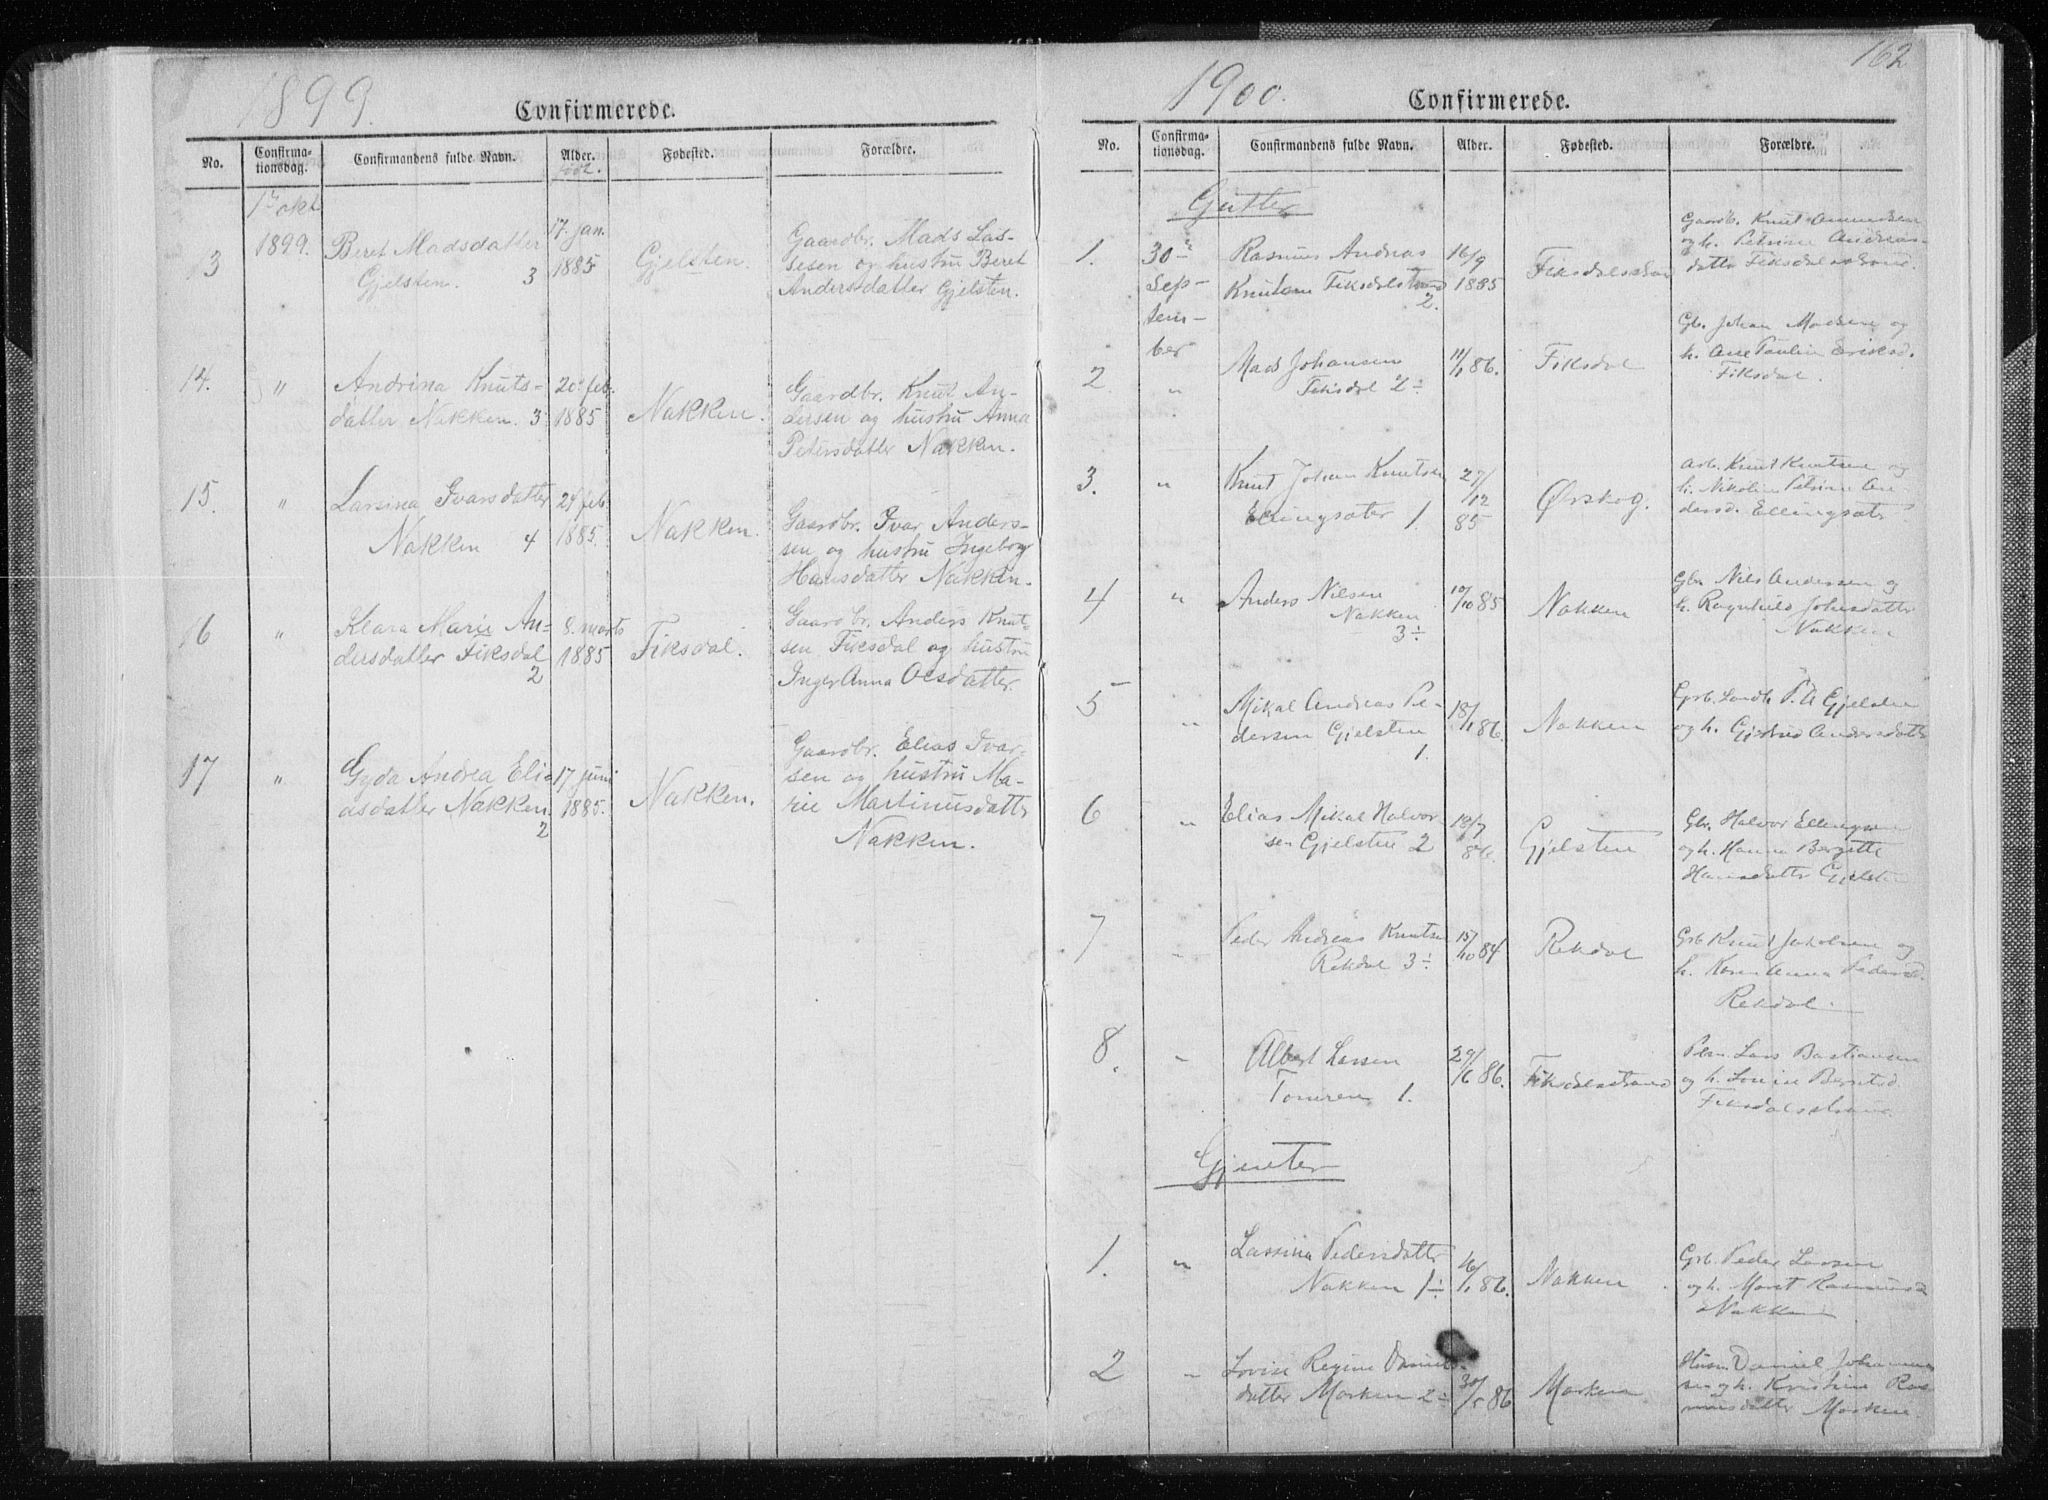 1899.
Confirmerede.
No.
Confirma-
tionsdag.
Confirmandens fulde Navn.
Alder.
født.
Fødested.
Forældre.
1ste okt
13
1899.
Beret Madsdatter
Gjelsten. 3
17. jan.
1885
Gjelsten.
Gaardbr. Mads Las-
sesen og hustru Beret
Andersdatter Gjelsten.
14.
"
Andrina Knuts-
datter Nakken. 3
20de feb.
1885
Nakken.
Gaardbr. Knut An-
dersen og hustru Anna
Petersdatter Nakken.
15.
"
Larsina Ivarsdatter
Nakken 4
24 feb.
1885.
Nakken.
Gaardbr. Ivar Anders-
sen og hustru Ingeborg
Hansdatter Nakken.
16
"
Klara Marie An-
dersdatter Fiksdal
2
8. marts
1885
Fiksdal.
Gaardbr. Anders Knut-
sen Fiksdal og hustru
Inger Anna Olsdatter.
17
"
Gyda Andrea Eli-
asdatter Nakken.
2
17 juni
1885.
Nakken.
Gaardbr. Elias Ivar-
sen og hustru Ma-
rie Martinusdatter
Nakken.
162
1900.
Confirmerede.
No.
Confirma-
tionsdag.
Confirmandens fulde Navn.
Alder.
Fødested.
Forældre.
Gutter
1.
30te
Sep-
tem-
ber
Rasmus Andreas
Knutsen Fiksdalstrand
2.
16/9
1885
Fiksdalsstrand
Gaardb. Knut
og h. Petrine Andreas-
datter Fiksdalsstrand.
2.
"
Mads Johansen
Fiksdal 2÷
86.
Fiksdal
Gb. Johan Madsen og
h. Ane Pauline Eriksd.
Fiksdal.
3.
"
Knut Johan Knutsen
Ellingsæter 1.
27/
12
85
Ørskog.
Arb. Knut Knutsen og
h. Nikoline Petrine An
dersd. Ellingsæter
4
"
Anders Nilsen
Nakken
3÷
10/10 85
Nakken
Gbr. Nils Andersen og
h. Ragnhild Johnsdatter
Nakken
5
"
Mikal Andreas Pe-
dersen Gjelsten
1.
18/1 86.
Nakken
P. A Gjelsten
og h. Gjertrud Andersdatter
6
"
Elias Mikal Halvor
sen Gjelsten 2
86.
Gjelsten
Gbr. Halvor Ellingsen
og h. Hanna Bergitte
Hansdatter Gjelsten
7
"
Peder Andreas Knutsen
Rekdal 3÷
15/10 84
Rekdal
Grb Knut Jakobsen og
h. Karen Anna Pedersd.
Rekdal.
8.
"
Albert Larsen
Tomren 1.
29/6 86.
Fiksdalsstrand
Lars Bastiansen
og h. Lovise Berntsd.
Fiksdalsstrand.
Gjenter
1.
"
Lassina Pedersdatter
Nakken 1÷
16/1 86.
Nakken
Grb. Peder Lassen
og h. Marit Rasmusd
Nakken
2
"
Lovise Regine Daniels-
datter Morken 2÷
30/5 86
Morken
Husm Daniel Johannes
sen og h. Kristine Ras
musdatter Morken.